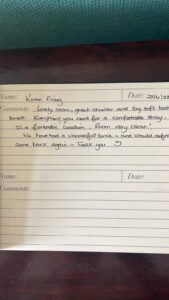 Name: Karen Date: 20/6/22
Comments: Lovely room, great shower and big soft bath
towels. Everything you need for a comfortable stay.
In a fantastic location. Room very clean!
We have had a wonderful time - and would
come back again - Thank you. :)
Name: Date:
Comments: